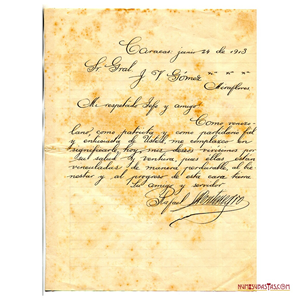 Caracas junio 24 de 1913
Sr Gral
J V Gómez " " "
Miraflores
Mi respetado Jefe y amigo
Como venezo-
lano, como patriota y como partidario fiel
y entusiasta de Usted, me complazco en
significarle hoy, mis votos fervientes por
su salud y ventura, pues ellas están
vinculadas de manera perdurable al bie-
nestar y al progreso de esta cara tierra
Su amigo y servidor
Rafael Montenegro
NUMISUBASTAS.COM